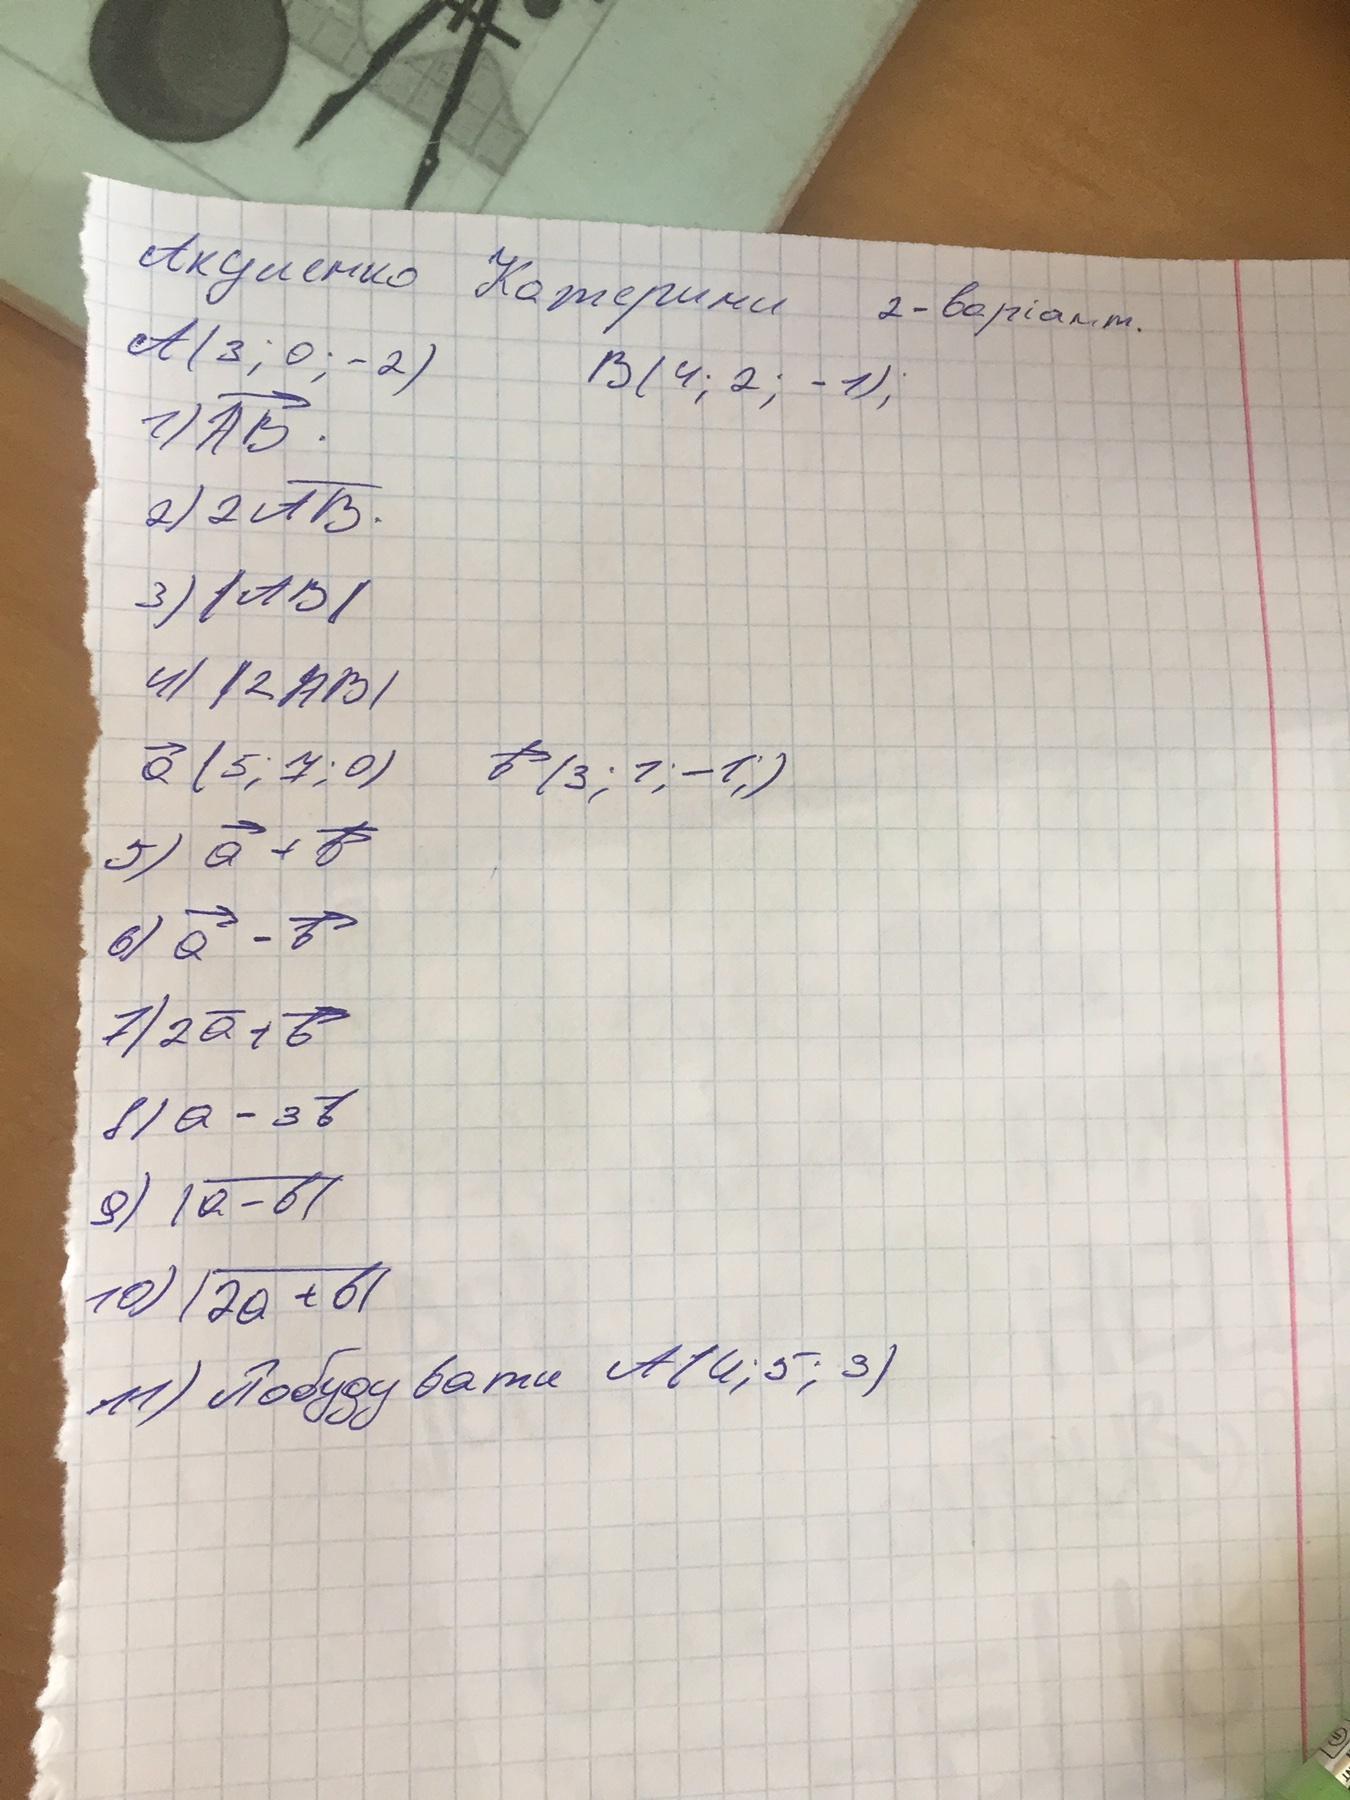 Акуленко Катерини 2-варіант.
A(3; 0; -2) B(4; 2; -1);
1) AB.
2) 2AB.
3) |AB|
4) |2AB|
a (5; 7; 0) b (3; 1; -1;)
5) a + b
6) a - b
7) 2a + b
8) a - 3b
9) |a - b|
10) |2a + b|
11) Побудувати A(4; 5; 3)